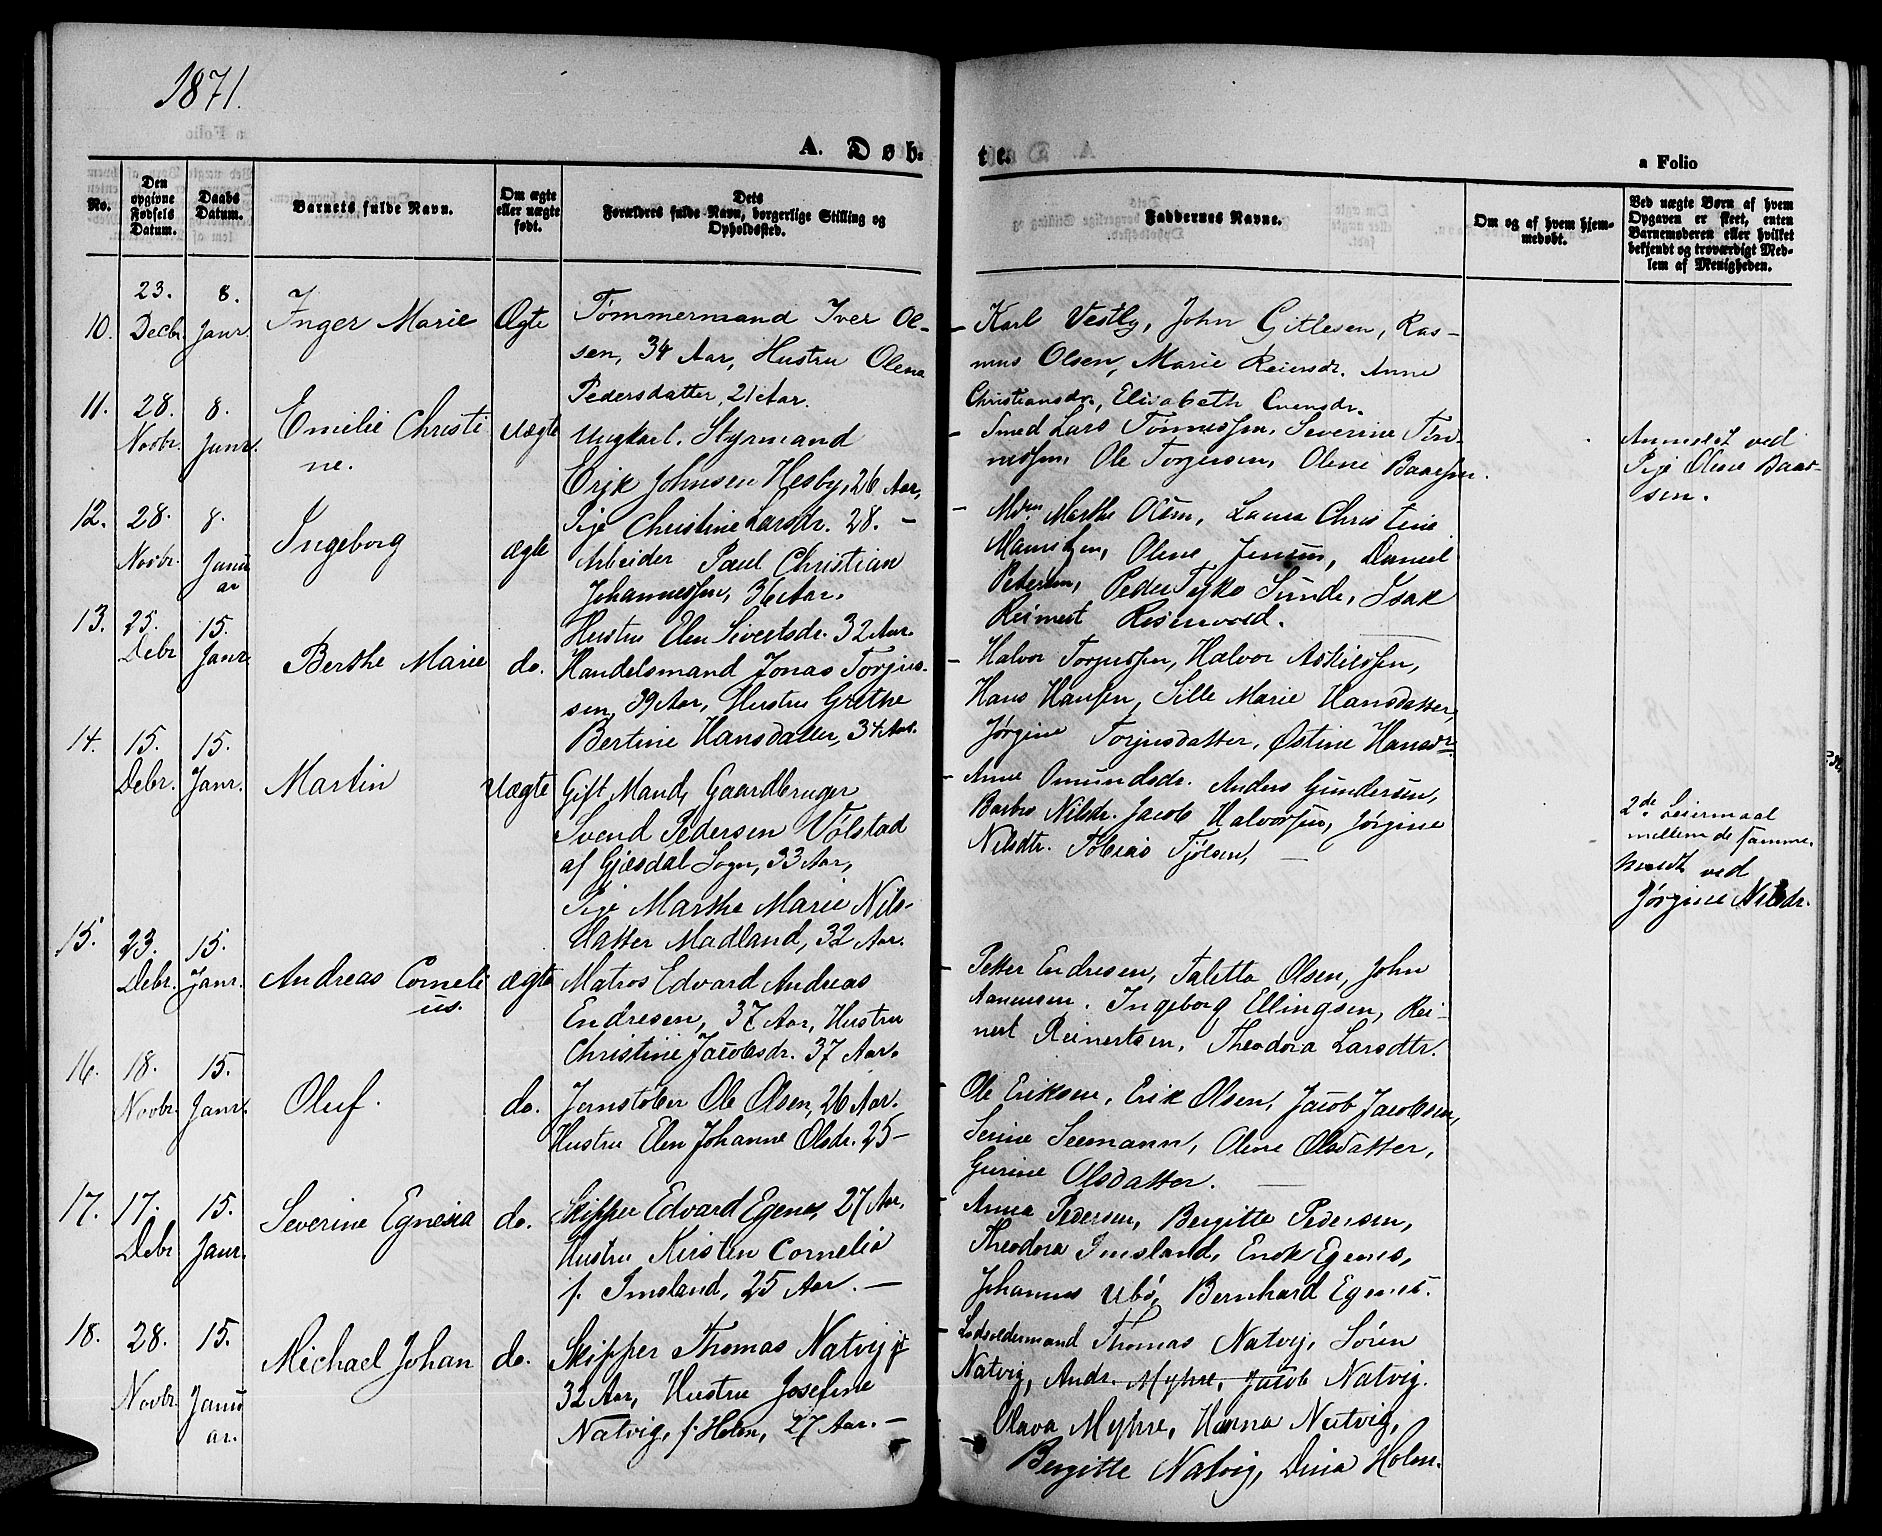 1871.
A. Døb-
te.
a Folio
No.
Den opgivne Fødsels Datum.
Daabs Datum.
Barnets fulde Navn.
Om ægte eller uægte født.
Dets Forældres fulde Navn, borgerlige Stilling og Opholdssted.
Faddernes Navne.
Om og af hvem hjemmedøbt.
Ved uægte Børn af hvem Opgaven er skeet, enten Barnemoderen eller hvilket bekjendt og troværdigt Medlem af Menigheden.
10. 23. Decbr. 8. Janr. Inger Marie Ægte
Tømmermand Iver Ol-
sen, 34 Aar, Hustru Olena
Pedersdatter, 21 Aar.
Karl Vestly, John Gitlesen, Ras-
mus Olsen, Marie Reiersdr. Anne
Christiansdr., Elisabeth Evensdr.
11. 28. Novbr. 8. Janr. Emilie Christi
ne. Uægte
Ungkarl. Styrmand
Erik Johnsen Hesby, 26 Aar,
Pige Christine Larsdr. 28. -
Smed Lars Tønnessen, Severine Tøn-
nessen, Ole Torjersen, Olene Baarsen.
Anmeldt ved
Pige Olene Baar-
sen.
12. 28. Novbr. 8. Janu
ar Ingeborg ægte
Arbeider Paul Christian
Johannessen, 36 Aar.
Hustru Elen Sivertsdr. 32 Aar.
Mdm. Marthe Olsen, Laura Christine
Mauritzen, Olene Jensen, Daniel
Petersen, Peder Tyko Sunde, Isak
Reimert Risenvold.
13. 25. Debr 15. Janr. Berthe Marie do.
Handelsmand Jonas Torjus-
sen, 39 Aar, Hustru Grethe
Bertine Hansdatter, 34 Aar.
Halvor Torjussen, Halvor Askildsen,
Hans Hansen, Sille Marie Hansdatter,
Jørgine Torjusdatter, Østine Hansdr.
14. 15. Debr. 15. Janr. Martin Uægte
Gift Mand, Gaardbruger
Svend Pedersen Vølstad
af Gjesdal Sogn, 33 Aar,
Pige Marthe Marie Nils-
datter Madland, 32 Aar.
Anne Omundsdr. Anders Gundersen,
Barbro Nilsdr. Jacob Halvorsen, Jørgine
Nilsdtr. Tobias Tjølsen, -
2de Leiermaal
mellem de samme.
Meldt ved
Jørgine Nilsdr.
15. 23. Debr. 15. Janr. Andreas Corneli
us. ægte
Matros Edvard Andreas
Endresen, 37 Aar, Hustru
Christine Jacobsdr. 37 Aar.
Petter Endresen, Taletta Olsen, John
Aanensen. Ingeborg Ellingsen, Rei-
nert Reinertsen, Theodora Larsdtr.
16. 18. Novbr. 15. Janr. Oluf. do.
Jernstøber Ole Olsen, 26 Aar.
Hustru Elen Johanne Olsdr. 25 -
Ole Eriksen, Erik Olsen, Jacob Jacobsen,
Serine Seemann, Olene Olsdatter,
Gurine Olsdatter. -
17. 17. Debr 15. Janr. Severine Egnesia do.
Skipper Edvard Egenes, 27 Aar,
Hustru Kirsten Cornelia
f. Imsland, 25 Aar. -
Anna Pedersen, Bergitte Pedersen,
Theodora Imsland, Enok Egenes,
Johannes Ubø, Bernhard Egenes.
18. 28. Novbr. 15. Janu
ar. Michael Johan do.
Skipper Thomas Natvig jr
32 Aar, Hustru Josefine
Natvig, f. Holm, 27 Aar. -
Lodsoldermand Thomas Natvig, Søren
Natvig, Andr. Myhre, Jacob Natvig.
Olava Myhre, Hanna Natvig,
Bergitte Natvig, Dina Holm.